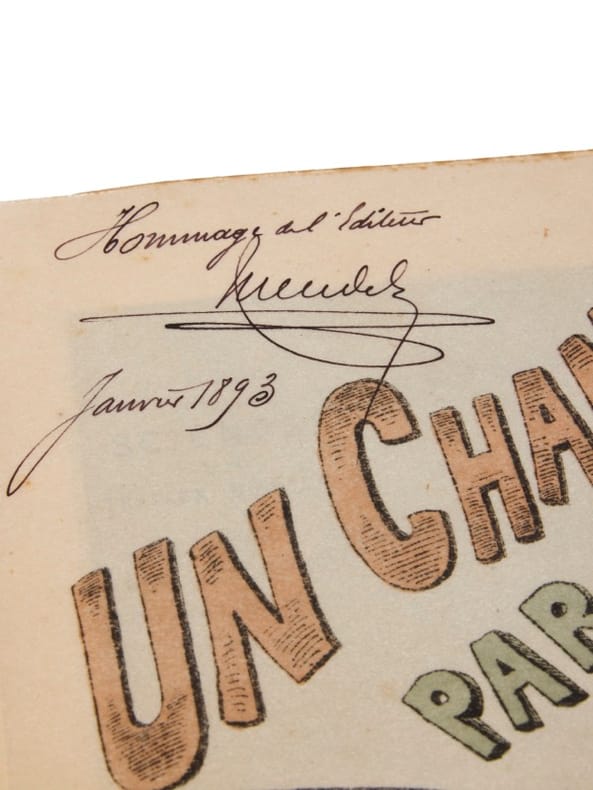 Hommage de l'Editeur
Mendel
Janvier 1893
UN CHAN
PAR